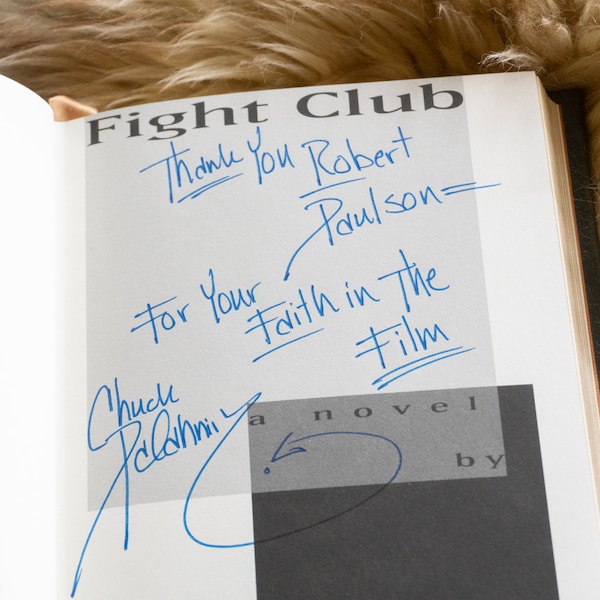 Fight Club
Thank You Robert
Paulson
For Your
Faith in The
Film
Chuck
Palahniu
a novel
by